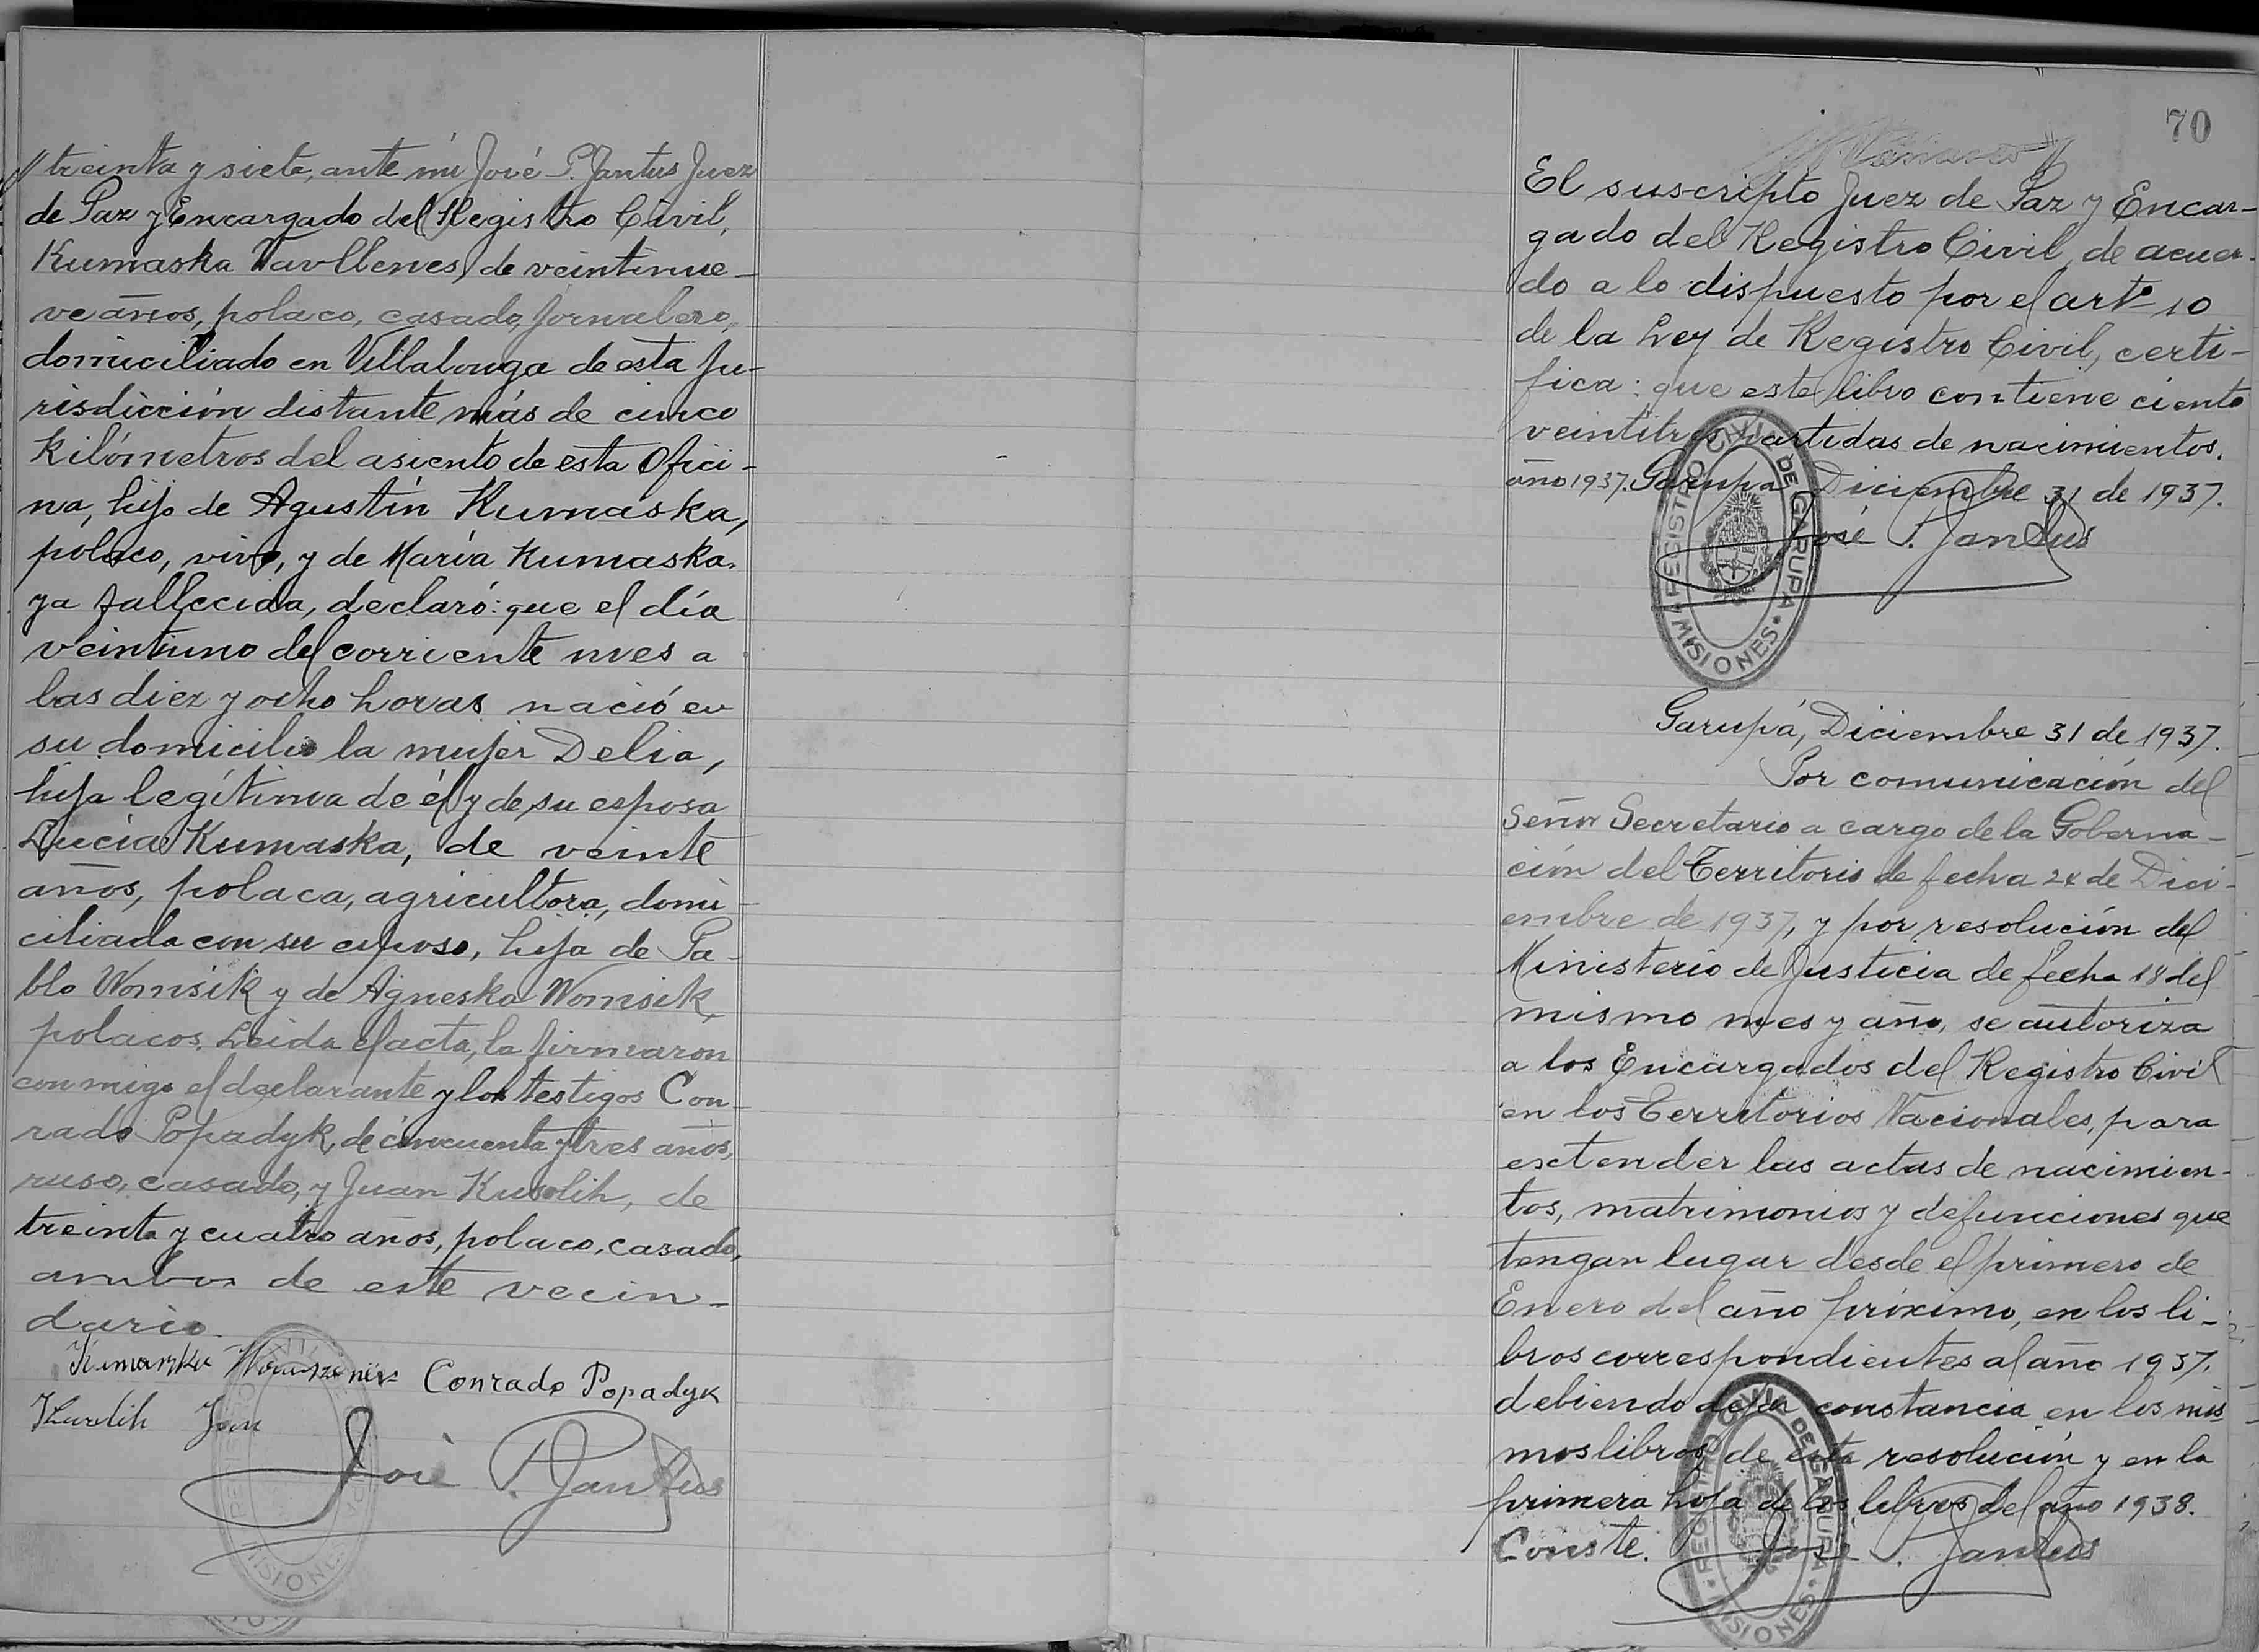 // treinta y siete, ante mi José P. Jantus Juez
de Paz y Encargado del Registro Civil,
Kumaska Vavllenes, de veintinue-
ve años, polaco, casado, jornalero,
domiciliado en Villalonga de esta Ju-
risdicción distante más de cinco
kilómetros del asiento de esta Ofici-
na, hijo de Agustín Kumaska,
polaco, vivo, y de María Kumaska,
ya fallecida, declaró: que el día
veintiuno del corriente mes a
las diez y ocho horas nació en
su domicilio la mujer Delia,
hija legítima de él y de su esposa
Lucía Kumaska, de veinte
años, polaca, agricultora, domi-
ciliada con su esposo, hija de Pa-
blo Womsik y de Agneska Womsik,
polacos. Leida el acta, la firmaron
conmigo el declarante y los testigos Con-
rado Popadyk, de cincuenta y tres años,
ruso, casado, y Juan Kusolih, de
treinta y cuatro años, polaco, casado,
ambos de este vecin-
dario.
Kumaszka Conrado Popadyk
Jan
José P. Jantus
REGISTRO CIVIL
MISIONES
70
El suscripto Juez de Paz y Encar-
gado del Registro Civil, de acuer-
do a lo dispuesto por el artº 10
de la Ley de Registro Civil, certi-
fica: que este libro contiene ciento
veintitres partidas de nacimientos.
año 1937. Garupá Diciembre 31 de 1937.
José P. Jantus
REGISTRO CIVIL DE GARUPA
MISIONES
Garupá, Diciembre 31 de 1937.
Por comunicación del
Señor Secretario a cargo de la Goberna-
ción del Territorio de fecha 24 de Dici-
embre de 1937, y por resolución del
Ministerio de Justicia de fecha 18 del
mismo mes y año, se autoriza
a los Encargados del Registro Civil
en los Territorios Nacionales, para
exctender las actas de nacimien-
tos, matrimonios y defunciones que
tengan lugar desde el primero de
Enero del año próximo, en los li-
bros correspondientes al año 1937,
debiendo dejar constancia en los mis
mos libros de esta resolución y en la
primera hoja de los libros del año 1938.
Conste. José P. Jantus
REGISTRO CIVIL DE GARUPA
MISIONES